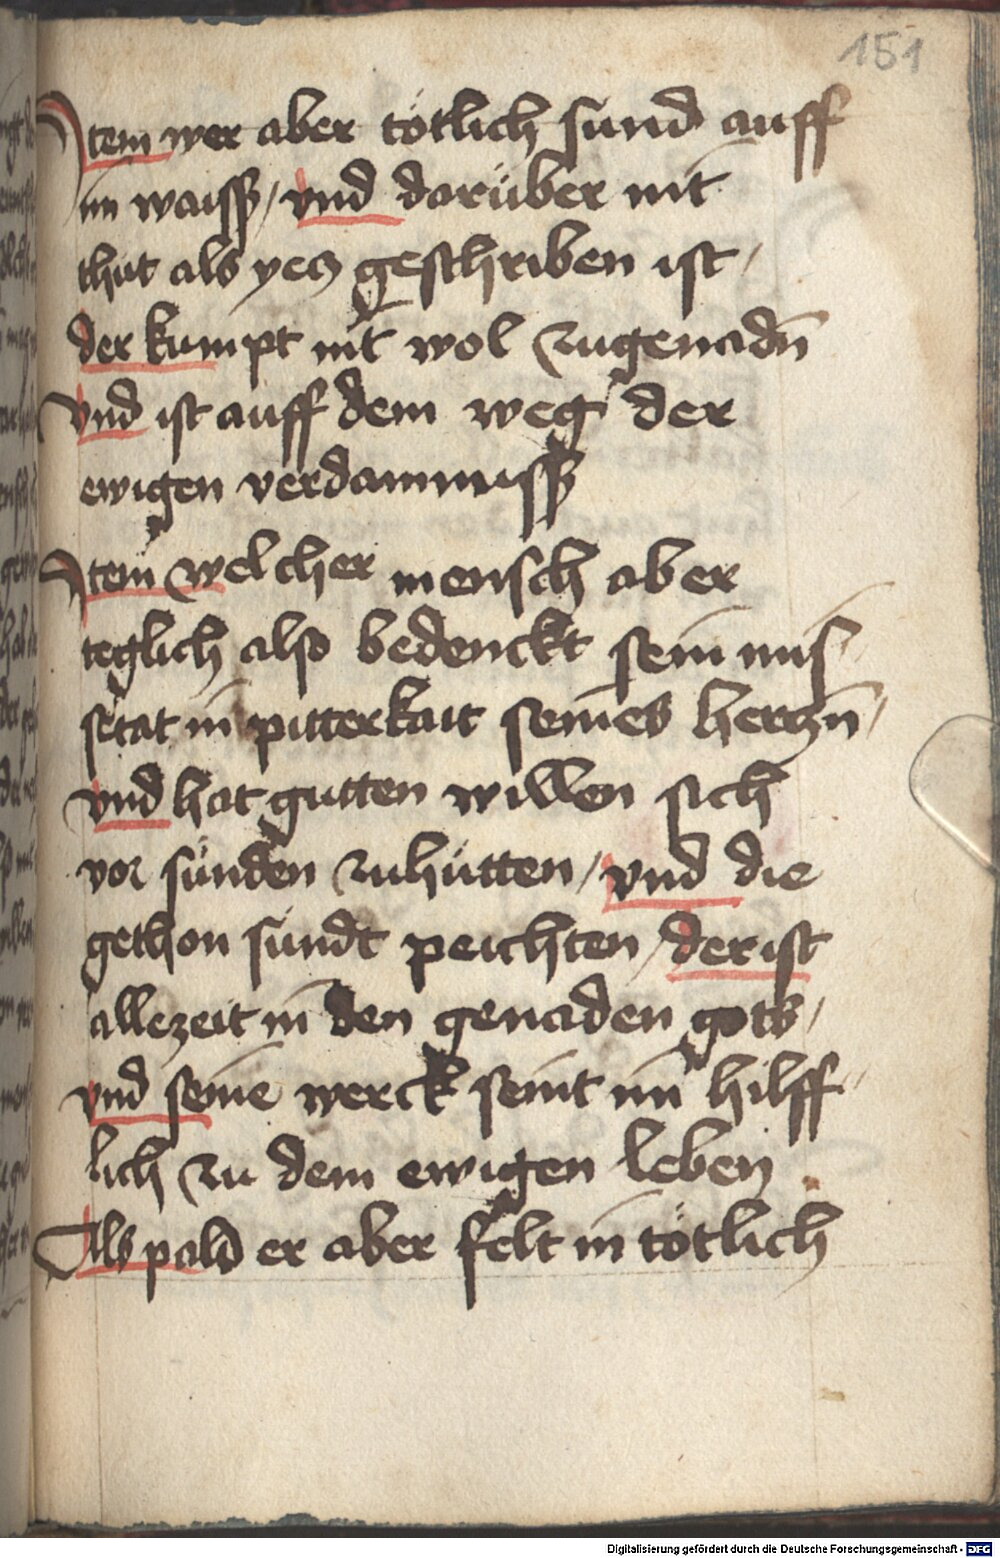 151
Item wer aber tötlich sünd auff
im waiss / vnd darüber nit
thüt als yetz geschriben ist /
der kumpt nit wol zugenadn̄
vnd ist auff dem weg der
ewigen verdamnuss
Item welcher mensch aber
teglich also bedenckt sein mis
setat in pitterkait seines hertzn̄ /
vnd hat gutten willen sich
vor sünden zuhütten / vnd die
gethon sündt peichten / der ist
allezeit in den genaden gots /
vnd seine werck seint im hilff
lich zu dem ewigen leben .
Als pald er aber felt in tötlich
Digitalisierung gefördert durch die Deutsche Forschungsgemeinschaft - DFG